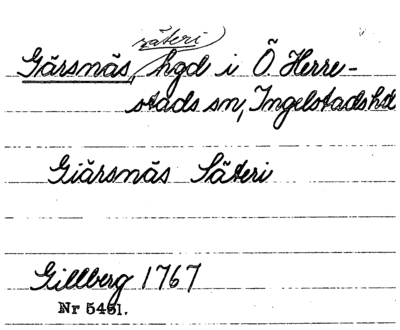 säteri
Gärsnäs, hgd i Ö. Herre-
stads sn, Ingelstads hd
Giärsnäs Säteri
Gillberg 1767
Nr 5461.